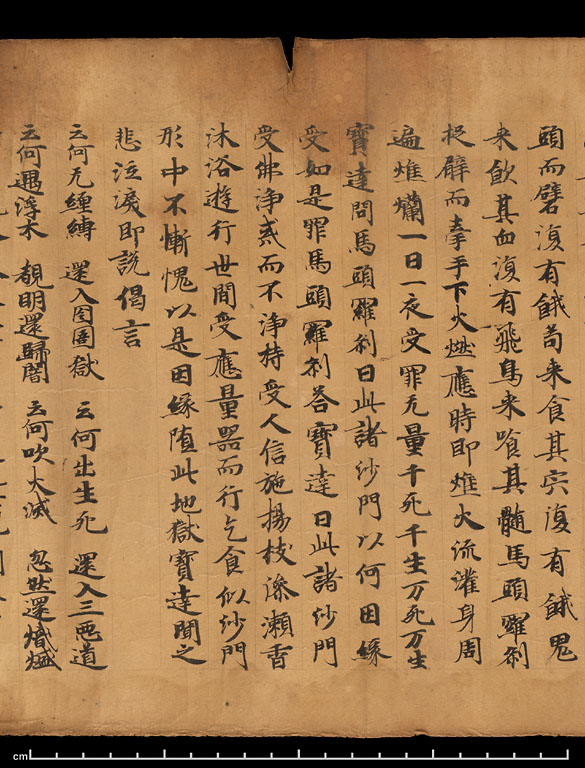 頭而礕復有餓苟来食其宍復有餓鬼
来飲其血復有飛鳥来飡其髓馬頭羅刹
捉臂而牽手下火燃應時即燋火流灌身周
遍燋爛一日一夜受罪无量千死千生万死万生
寶達問馬頭羅刹曰此諸沙門以何因緣
受如是罪馬頭羅刹荅寶達曰此諸沙門
受佛淨戒而不淨持受人信施揚枝澡瀨香
沐浴遊行世間受應量器而行乞食似沙門
形中不慚愧以是因緣堕此地獄寶達聞之
悲泣淚即説偈言
云何无纏縛 還入囹圄獄 云何出生死 還入三惡道
云何遇浮木 覩明還歸闇 云何吹火滅 忽然還熾燃